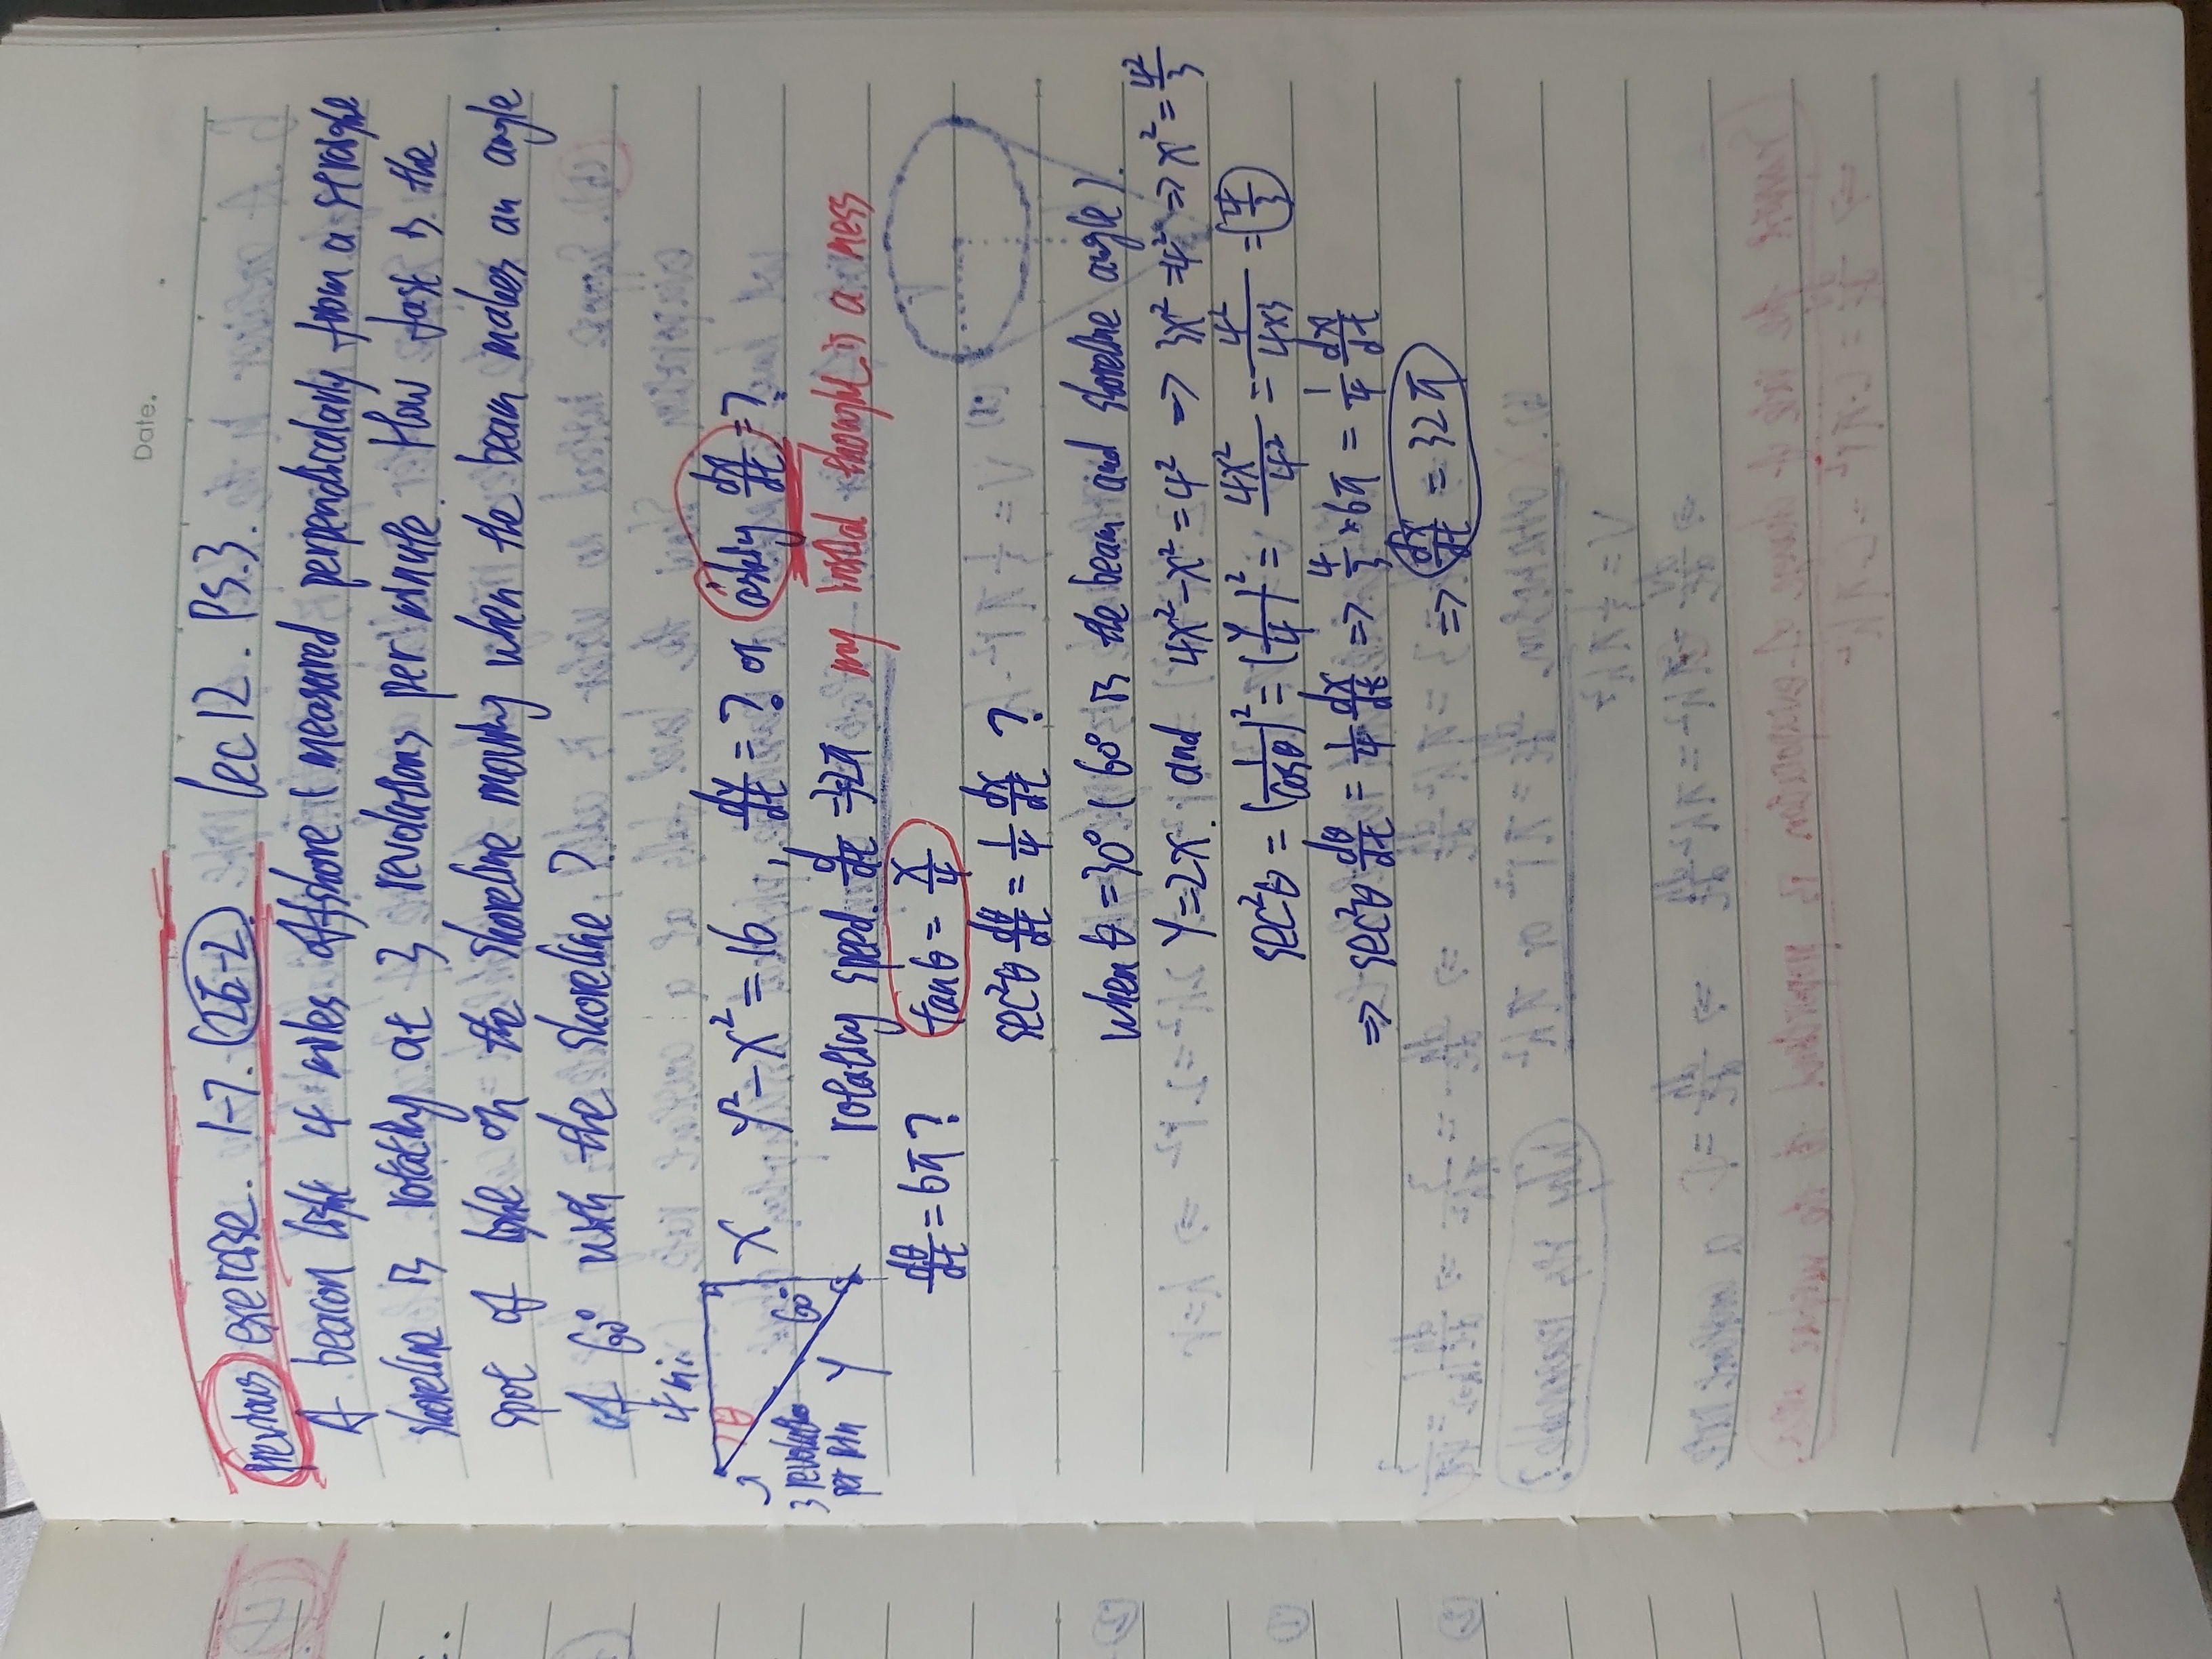 Date.
previous exercise. 1-7. (2E-2) lec 12. PS.3.
A beacon light 4 miles offshore ( measured perpendicularly from a straight
shoreline is rotating at 3 revolutions per minute. How fast is the
spot of light on the shoreline moving when the beam makes an angle
of 60° with the shoreline?
4 mi
θ
x
60°
y
3 revolution
per min
y² - x² = 16, dy/dt = ? or asking dx/dt = ?
rotating speed. d/dt = 3·2π my initial thought is a mess
dθ/dt = 6π? tanθ = x/4
sec²θ dθ/dt = 1/4 dx/dt ?
when θ = 30° ( 60° is the beam and shoreline angle).
y = 2x. and 4x² - x² = 4² => 3x² = 4² => x² = 4²/3
sec²θ = (1/cosθ)² = (y/4)² = 4x²/4² = 4²/4×3 = 4/3
=> sec²θ dθ/dt = 1/4 dx/dt => 4/3 × 6π = 1/4 dx/dt
=> dx/dt = 32π